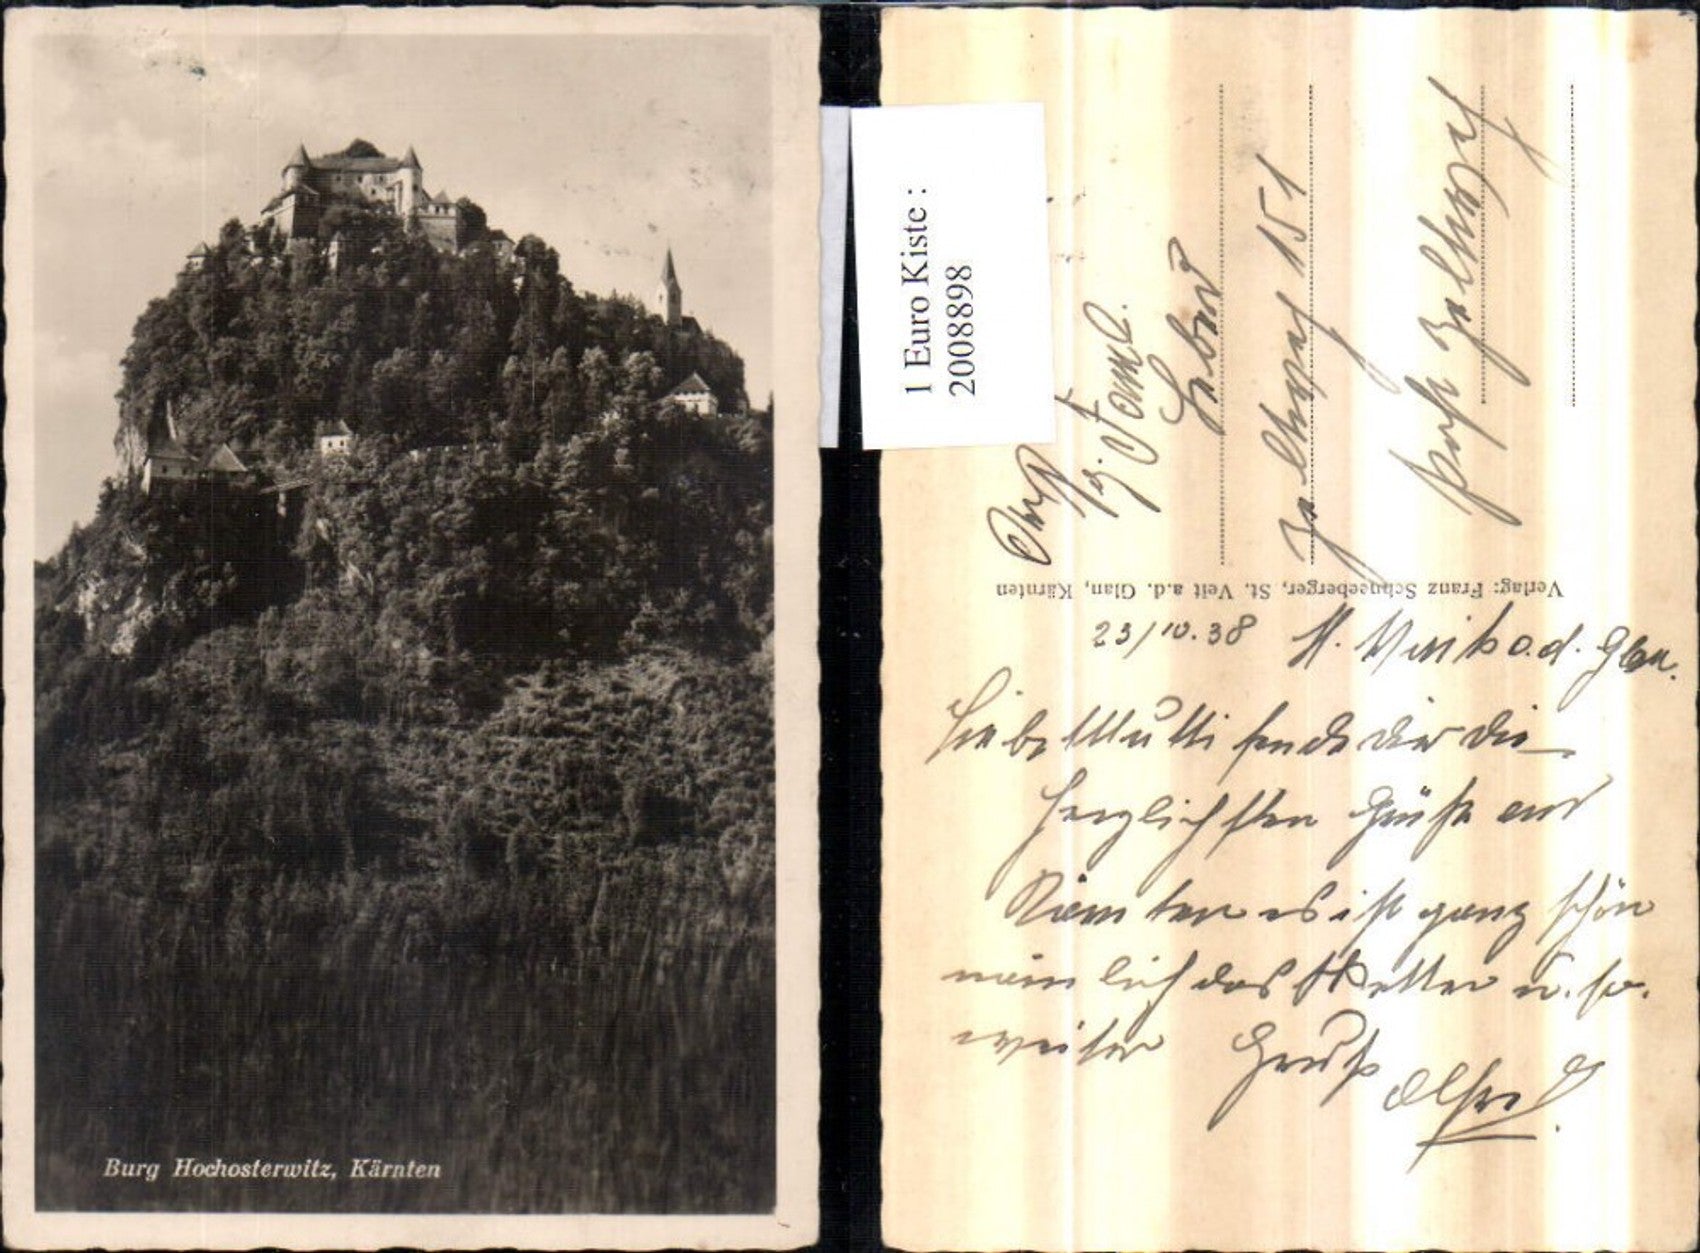 Burg Hochosterwitz, Kärnten
1 Euro Kiste :
2008898
Verlag: Franz Schneeberger, St. Veit a.d. Glan, Kärnten
151
Post
23/10.38 St. Veit a.d. Glan.
Liebe Mutti sende dir die
herzlichsten Grüße aus
Kärnten es ist ganz schön
nämlich das Wetter u. so.
weiter Gruß
Alfred